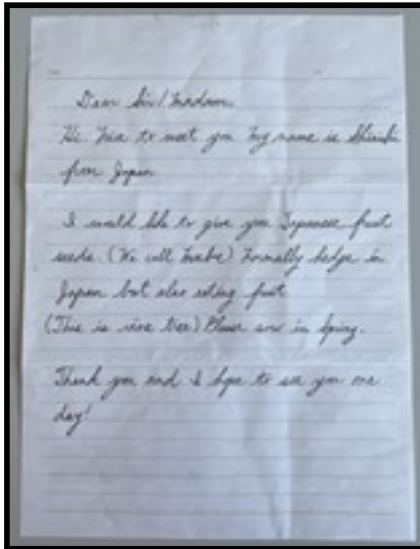 Dear Sir/Madam.
Hi. Nice to meet you My name is
from Japan
I would like to give you Japanese fruit
seeds. (We call Mube) Normally hedge in
Japan but also eating fruit
(This is vine tree) Please sow in Spring.
Thank you and I hope to see you one
day!